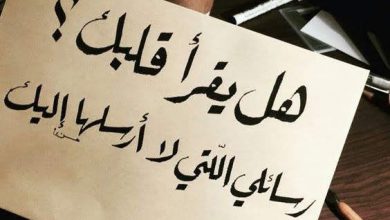 هل يقرأ قلبك ؟
رسائلي الّتي لا أرسلها إليك